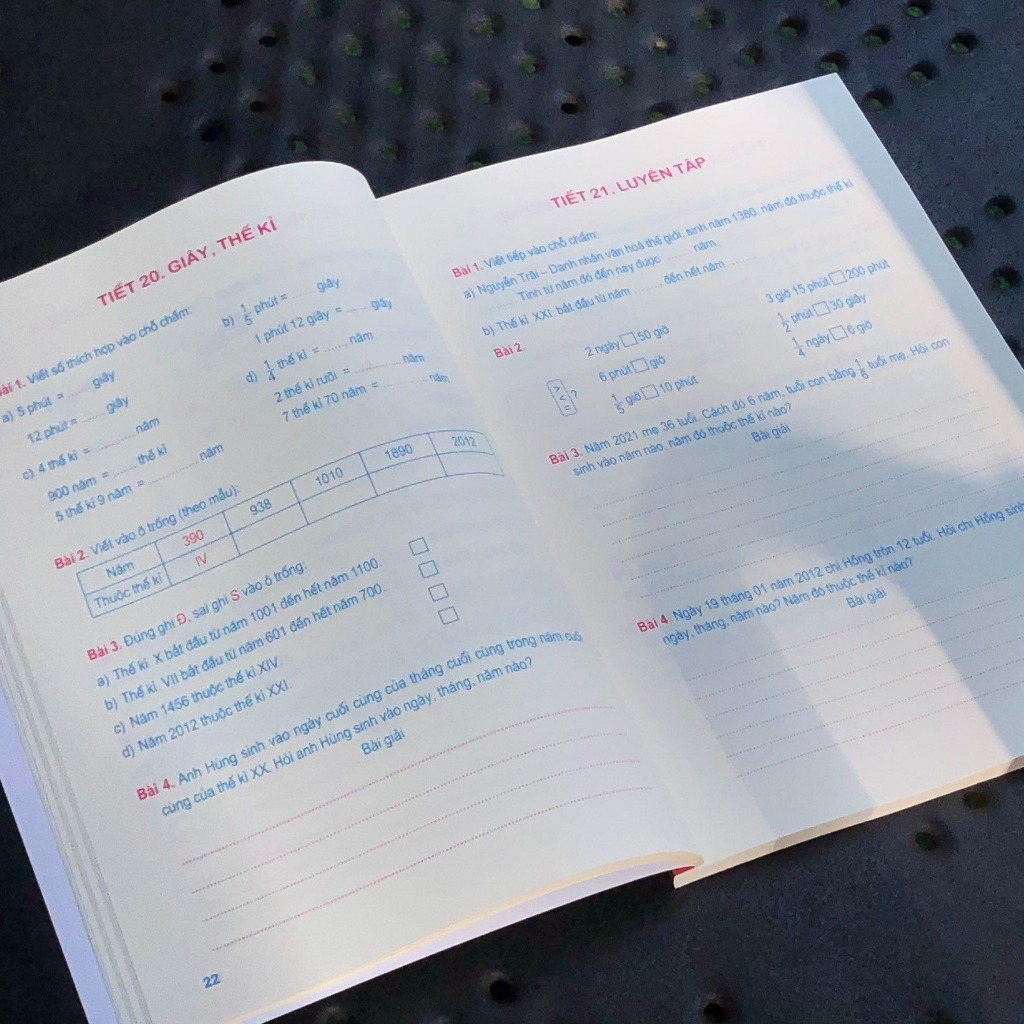 TIẾT 20. GIÂY, THẾ KỈ
Bài 1. Viết số thích hợp vào chỗ chấm:
a) 5 phút = ...... giây
12 phút = ...... giây
b) 1/5 phút = ...... giây
1 phút 12 giây = ...... giây
c) 4 thế kỉ = ............ năm
900 năm = ...... thế kỉ
5 thế kỉ 9 năm = ............ năm
d) 1/4 thế kỉ = ........ năm
2 thế kỉ rưỡi = ............ năm
7 thế kỉ 70 năm = ............ năm
Bài 2. Viết vào ô trống (theo mẫu):
Năm 390 938 1010 1890 2012
Thuộc thế kỉ IV
Bài 3. Đúng ghi Đ, sai ghi S vào ô trống:
a) Thế kỉ X bắt đầu từ năm 1001 đến hết năm 1100.
b) Thế kỉ VII bắt đầu từ năm 601 đến hết năm 700.
c) Năm 1456 thuộc thế kỉ XIV.
d) Năm 2012 thuộc thế kỉ XXI.
Bài 4. Anh Hùng sinh vào ngày cuối cùng của tháng cuối cùng trong năm cuối
cùng của thế kỉ XX. Hỏi anh Hùng sinh vào ngày, tháng, năm nào?
Bài giải
22
TIẾT 21. LUYỆN TẬP
Bài 1. Viết tiếp vào chỗ chấm:
a) Nguyễn Trãi – Danh nhân văn hoá thế giới, sinh năm 1380, năm đó thuộc thế kỉ
............ Tính từ năm đó đến nay được ........ năm.
b) Thế kỉ XXI bắt đầu từ năm ........ đến hết năm ........
Bài 2.
> < = ?
2 ngày □ 50 giờ
6 phút □ giờ
1/5 giờ □ 10 phút
3 giờ 15 phút □ 200 phút
1/2 phút □ 30 giây
1/4 ngày □ 6 giờ
Bài 3. Năm 2021 mẹ 36 tuổi. Cách đó 6 năm, tuổi con bằng 1/6 tuổi mẹ. Hỏi con
sinh vào năm nào, năm đó thuộc thế kỉ nào?
Bài giải
Bài 4. Ngày 19 tháng 01 năm 2012 chị Hồng tròn 12 tuổi. Hỏi chị Hồng sinh
ngày, tháng, năm nào? Năm đó thuộc thế kỉ nào?
Bài giải